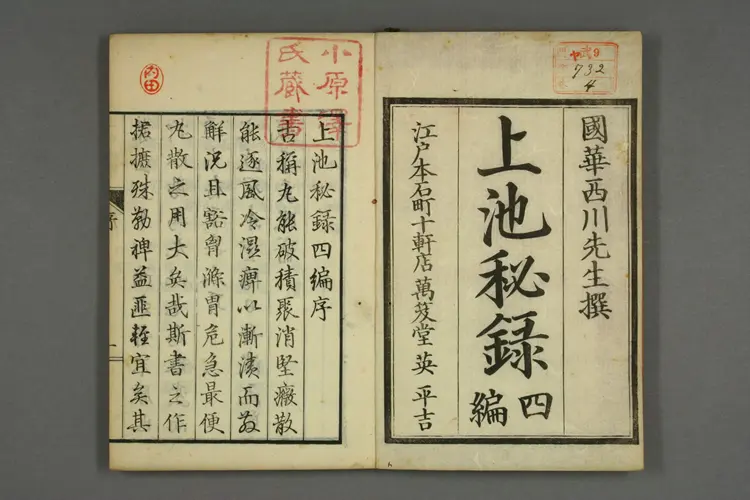 國華西川先生撰
上池秘録
四編
江戸本石町十軒店 萬笈堂 英 平吉
9
732
4
小原澤
氏藏書
上池秘録四編序
古稱九能破積聚消堅癥散
能逐風冷濕痺以漸漬而
鮮況且豁胷滌胃危急最便
丸散之用大矣哉斯書之作
捃摭殊勤裨益匪輕宜矣其
内田
序